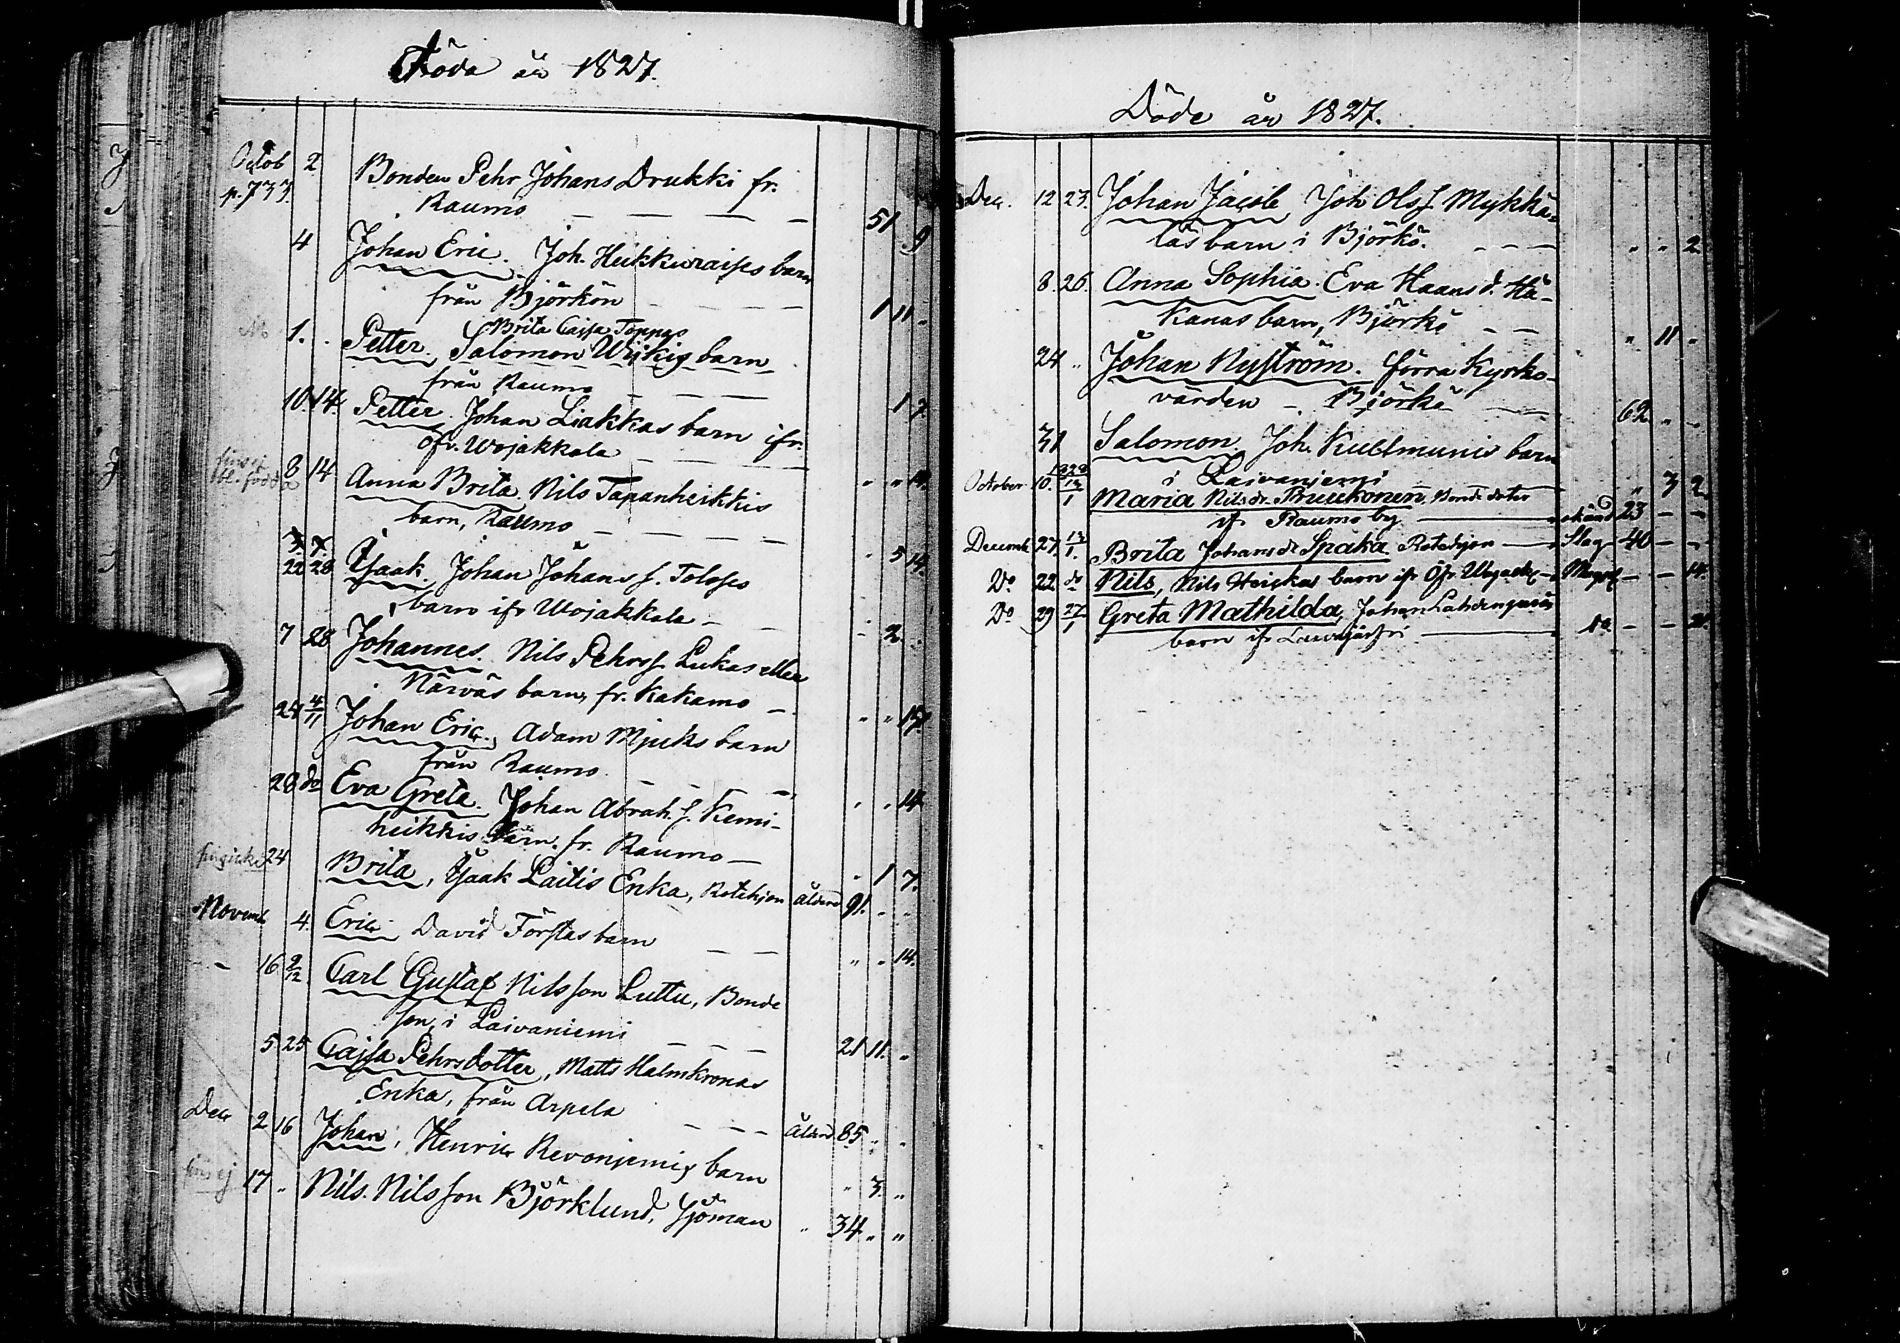 Döda år 1827.
Octob 2. Bonden Pehr Johans Drukki fr.
p. 733. Raumo — — — — 51 . 9
4 Johan Eric. Joh. Heikkuraises barn
från Björkön — — — 1 11 .
Brita Cajsa Tornas
1. . Petter. Salomon Wiikig barn
från Raumo — — — 1 7.
10. 14. Petter. Johan Liakkas barn ifr.
Öfv. Wojakkala — — — " " 14.
8 14 Anna Brita. Nils Tapanheikkis
barn, Raumo — — — . 5 14.
22 28 Isaak. Johan Johans s. Toloses
barn ifr Wojakkala — — - 2. .
7 28 Johannes. Nils Pehrss. Lukas eller
Närväs barn, fr. Kakamo — " "
24 4/11 Johan Eric, Adam Mjuks barn
från Raumo — — — . . 14
28 do Eva Greta. Johan Abrah. s. Kemi-
heikkis barn. fr. Raumo — . 1 7.
24 Brita, Isaak Laitis Enka, Rotehjon ålderd 91. . .
Novemb 4. Eric David Förstas barn — — " . 14.
16 9/12 Carl Gustaf Nilsson Luttu, Bonde
son, i Laivaniemi — — — 21 11. .
5 25 Cajsa Pehrsdotter, Matts Halmkronas
Enka, från Arpela — — — Ålderd. 85 . .
Dec 2 16 Johan, Henric Revonjemis barn " 3. "
17 . Nils Nilsson Björklund, Sjöman " 34 " "
Döde år 1827.
Dec. 12 23. Johan Jacob Joh Ols s. Mykkä-
läs barn i Björkö. — — — " " 2
8. 26. Anna Sophia. Eva Haans d. Hä-
kanas barn, Björkö — — " 11 "
24 " Johan Nyström. förra Kyrko-
värden — Björkö — 62 " "
31 Salomon Joh. Kublmunis barn
i Laivanjemi — " 3 2
October 10. 1828 12/1 Maria Nilsdr. Pruukonen, Bonde doter
ifr Raumo by — 23 — —
Decemb 27. 13/1. Brita Johansdr Spaka Rotehjon — Slag 40 — —
Do 22 do Nils, Nils Heickas barn ifr Öfr Wojack — — — 14.
Do 29 27/1 Greta Mathilda, Johan
barn ifr — do — — 21.